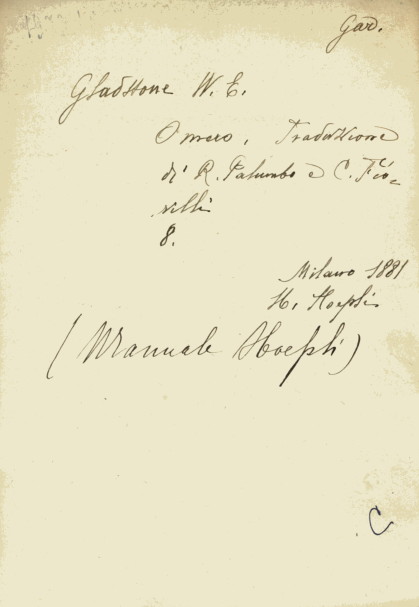 Gad.
Gladstone W. E.
Omero. Traduzione
di R. Palumbo e C. Fio-
rilli
8.
Milano 1881
H. Hoepli
(Manuale Hoepli)
C